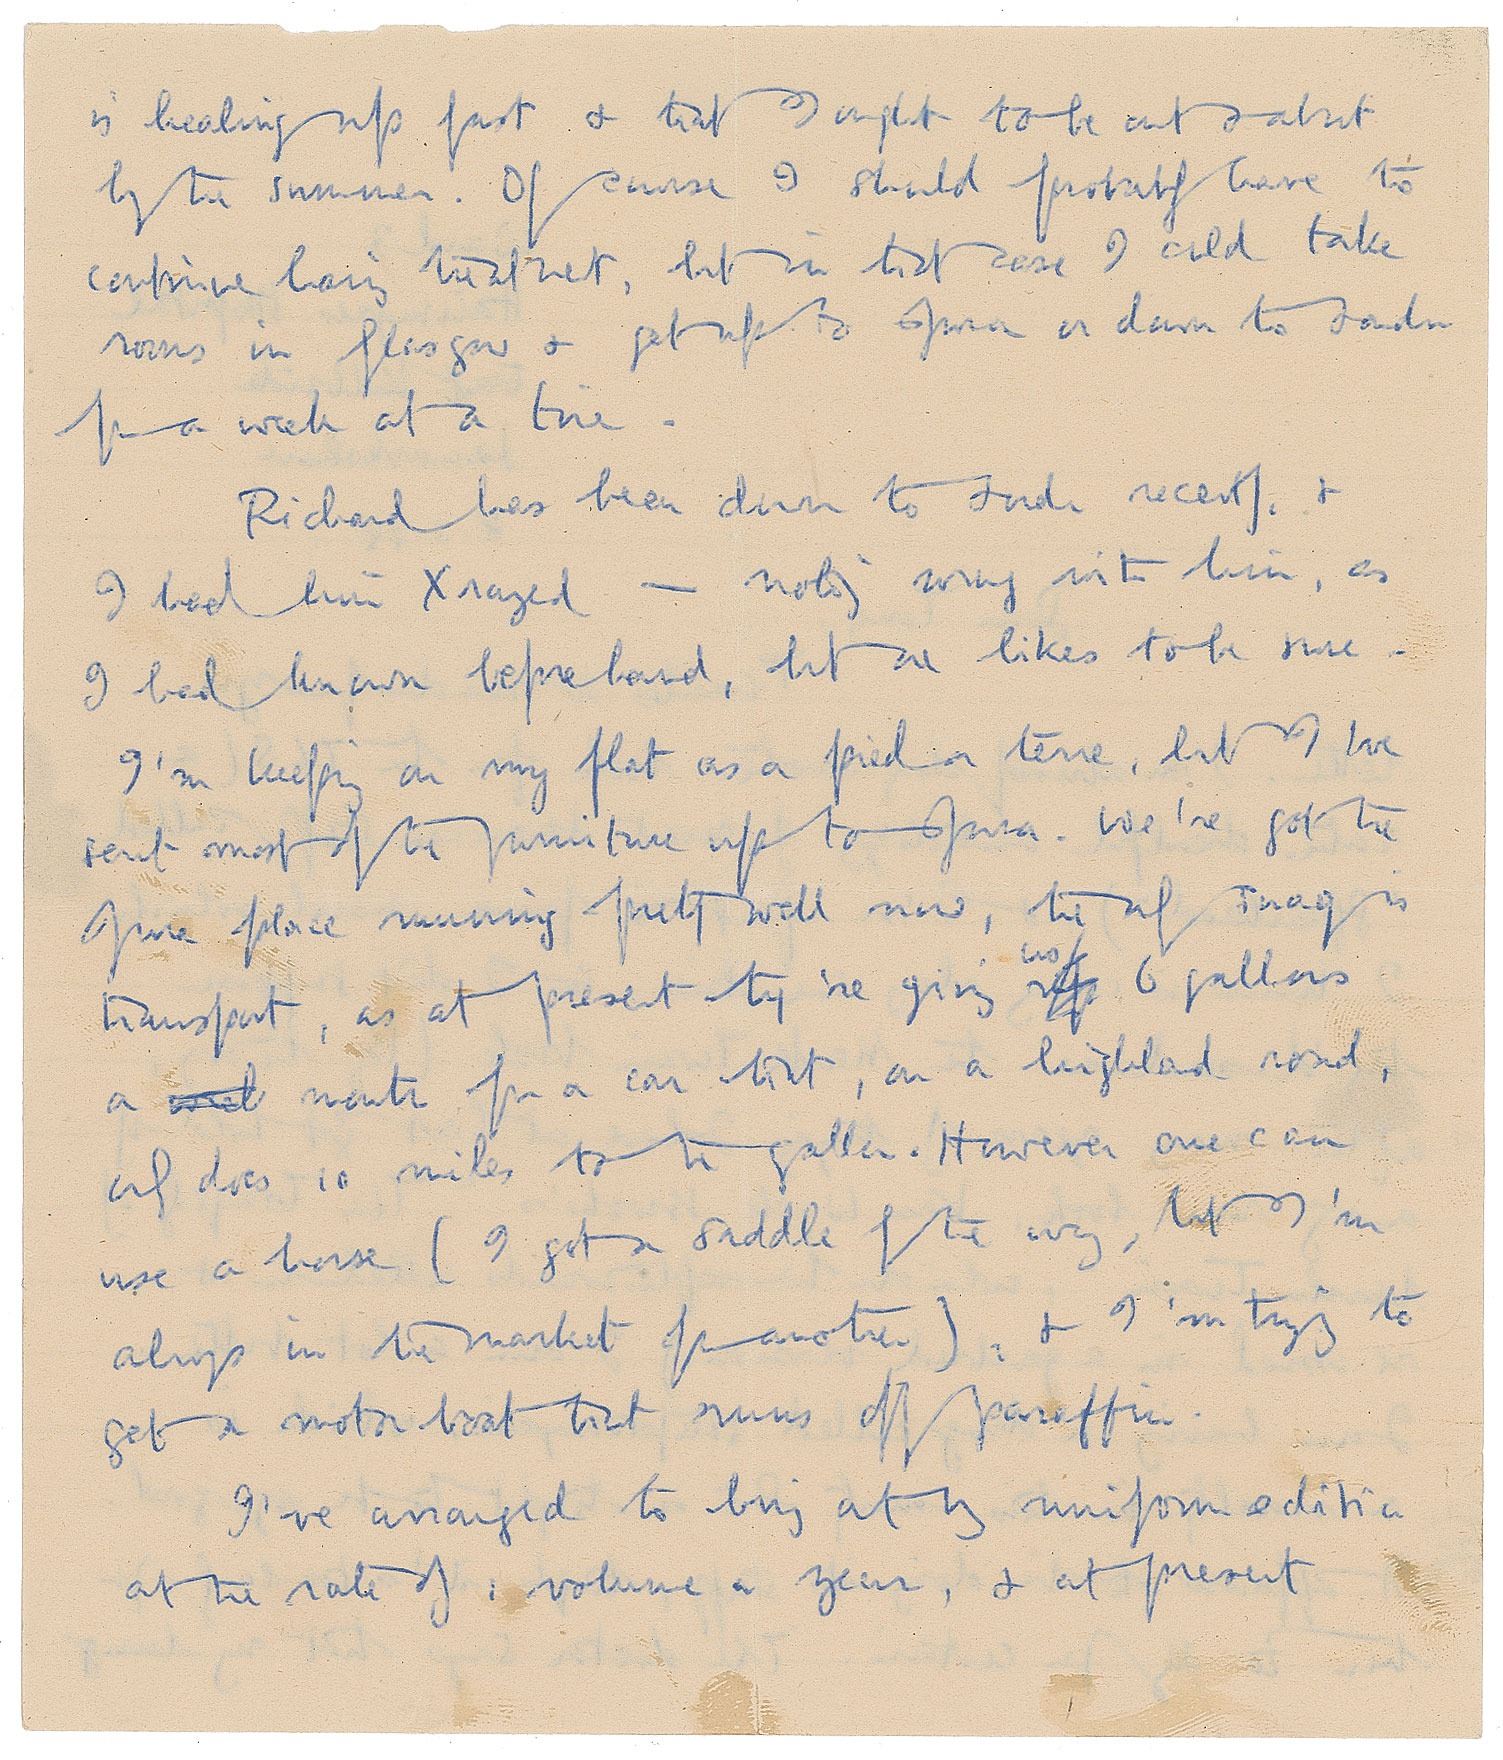 is healing up fast & that I ought to be out & about
by the summer. Of course I should probably have to
continue having treatment, but in that case I could take
rooms in Glasgow & get up to Jura or down to London
for a week at a time.
Richard has been down to London recently, &
I had him Xrayed — nothing wrong with him, as
I had known beforehand, but one likes to be sure.
I'm keeping on my flat as a pied a terre, but I've
sent most of the furniture up to Jura. We've got the
Jura place running pretty well now, the only snag is
transport, as at present they're giving us 6 gallons
a month for a car that, on a highland road,
only does 10 miles to the gallon. However one can
use a horse (I got a saddle by the way, but I'm
always in the market for another), & I'm trying to
get a motor boat that runs off paraffin.
I've arranged to bring out my uniform edition
at the rate of 1 volume a year, & at present